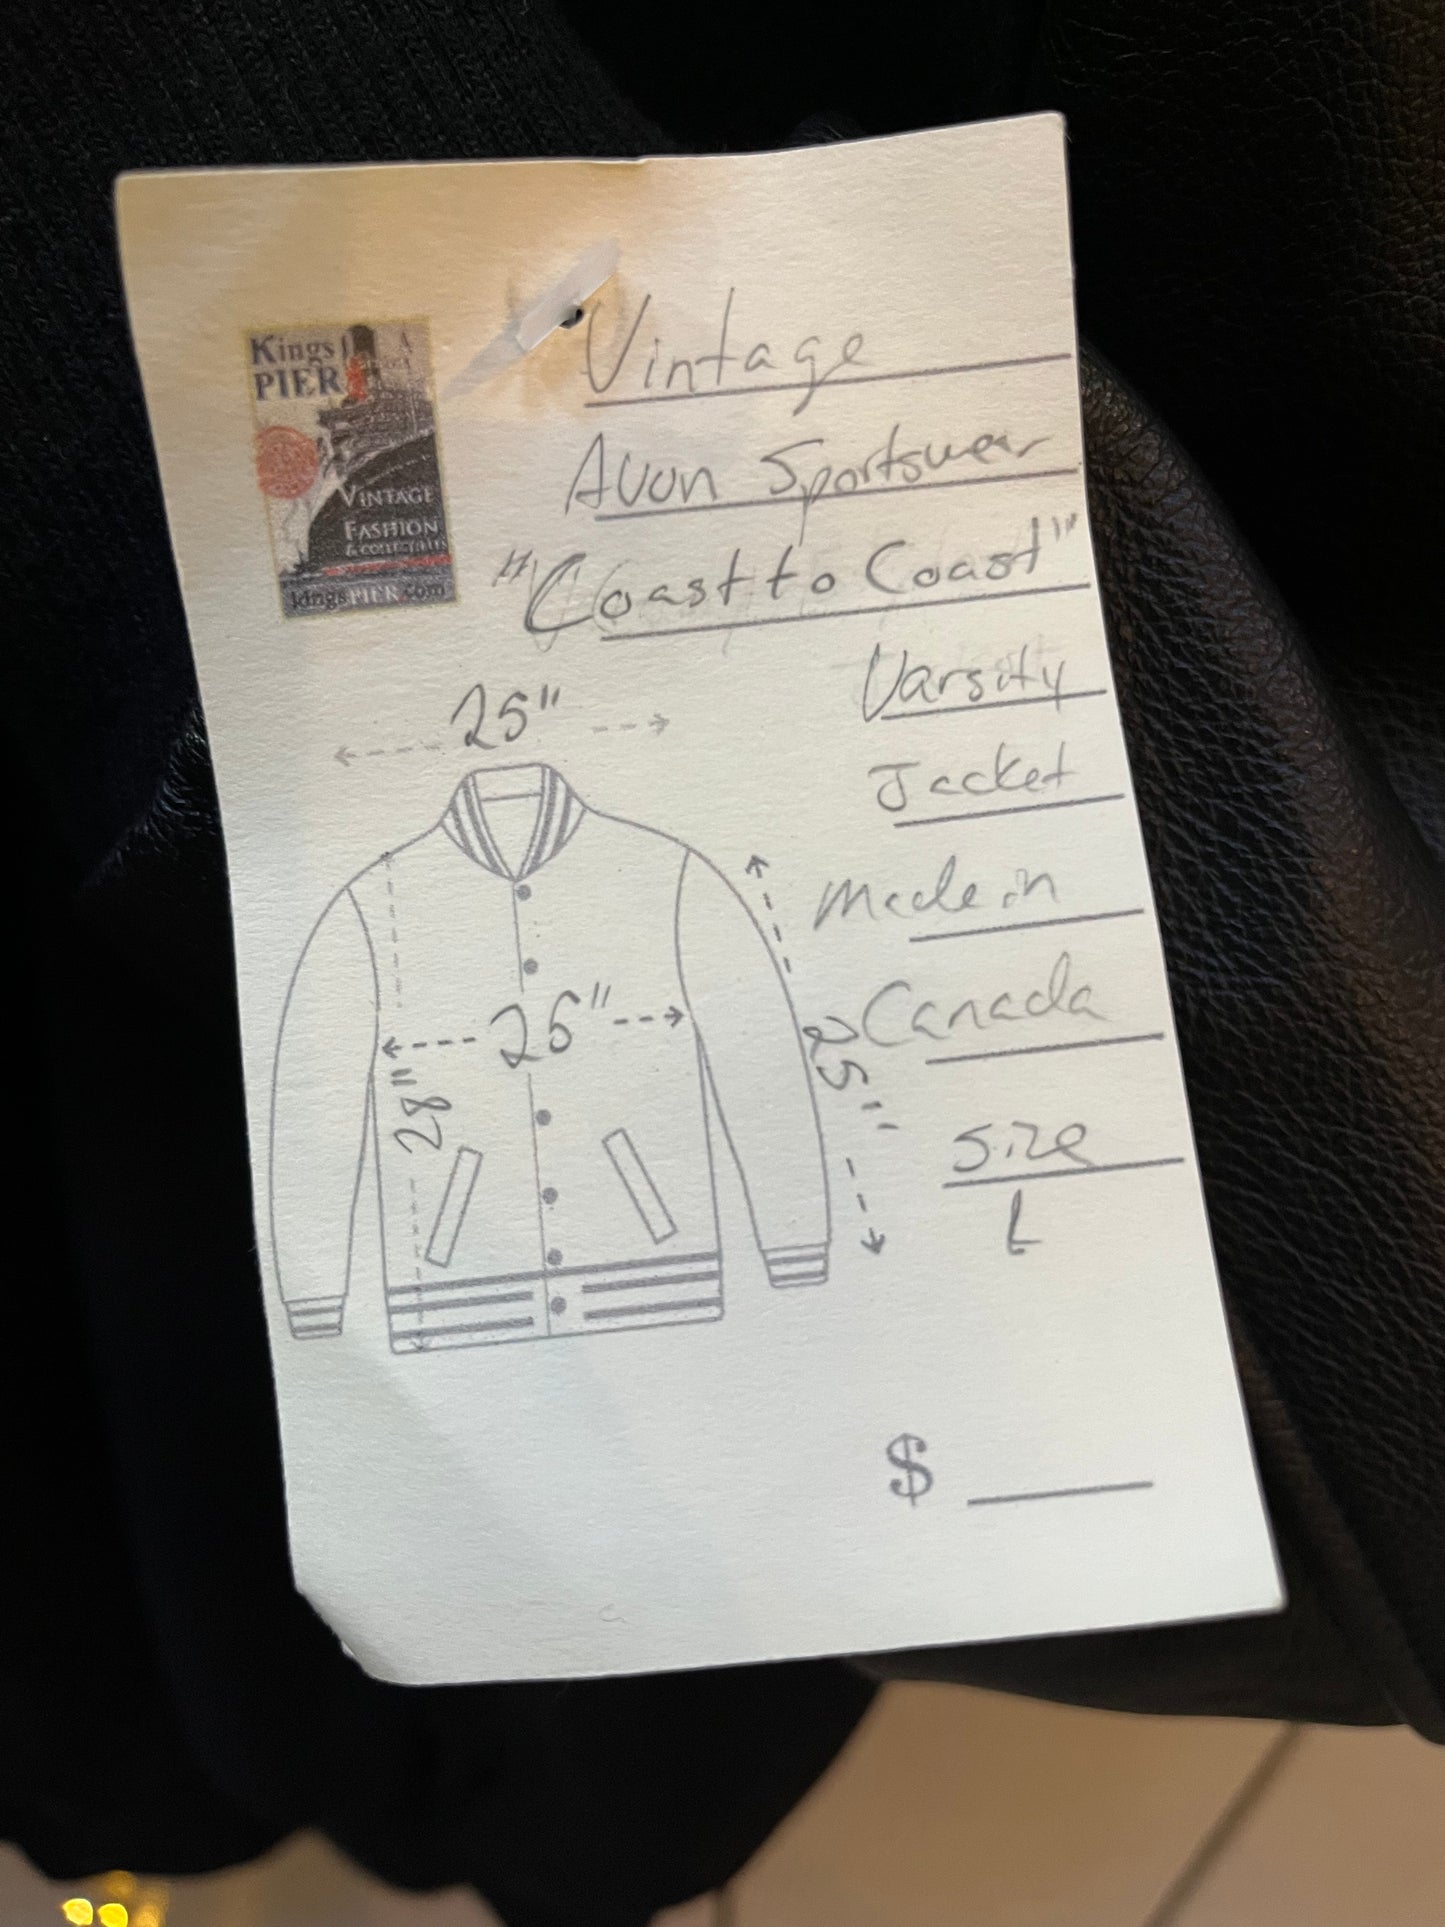 Kings
PIER
VINTAGE
FASHION
& COLLECTIBLES
kingsPIER.com
Vintage
Avon Sportswear
"Coast to Coast"
Varsity
Jacket
Made in
Canada
Size
L
25"
26"
28"
25"
$